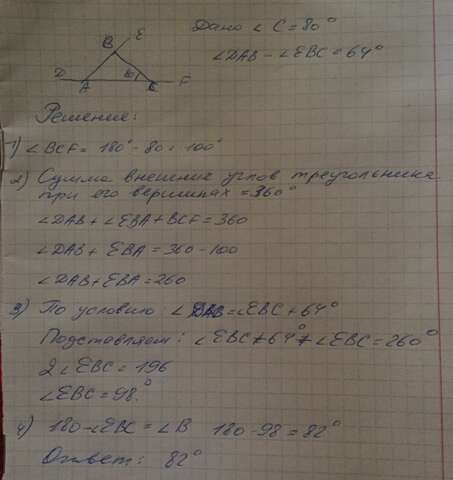 Дано ∠ C = 80°
∠DAB - ∠EBC = 64°
E
B
D
80
A
C
F
Решение:
1) ∠BCF = 180° - 80 = 100°
2) Сумма внешних углов треугольника
при его вершинах = 360°
∠DAB + ∠EBA + BCF = 360
∠DAB + EBA = 360 - 100
∠DAB + EBA = 260
3) По условию: ∠DAB = ∠EBC + 64°
Подставляем: ∠EBC + 64° + ∠EBC = 260°
2∠EBC = 196
∠EBC = 98°
4) 180 - ∠EBC = ∠B 180 - 98 = 82°
Ответ: 82°